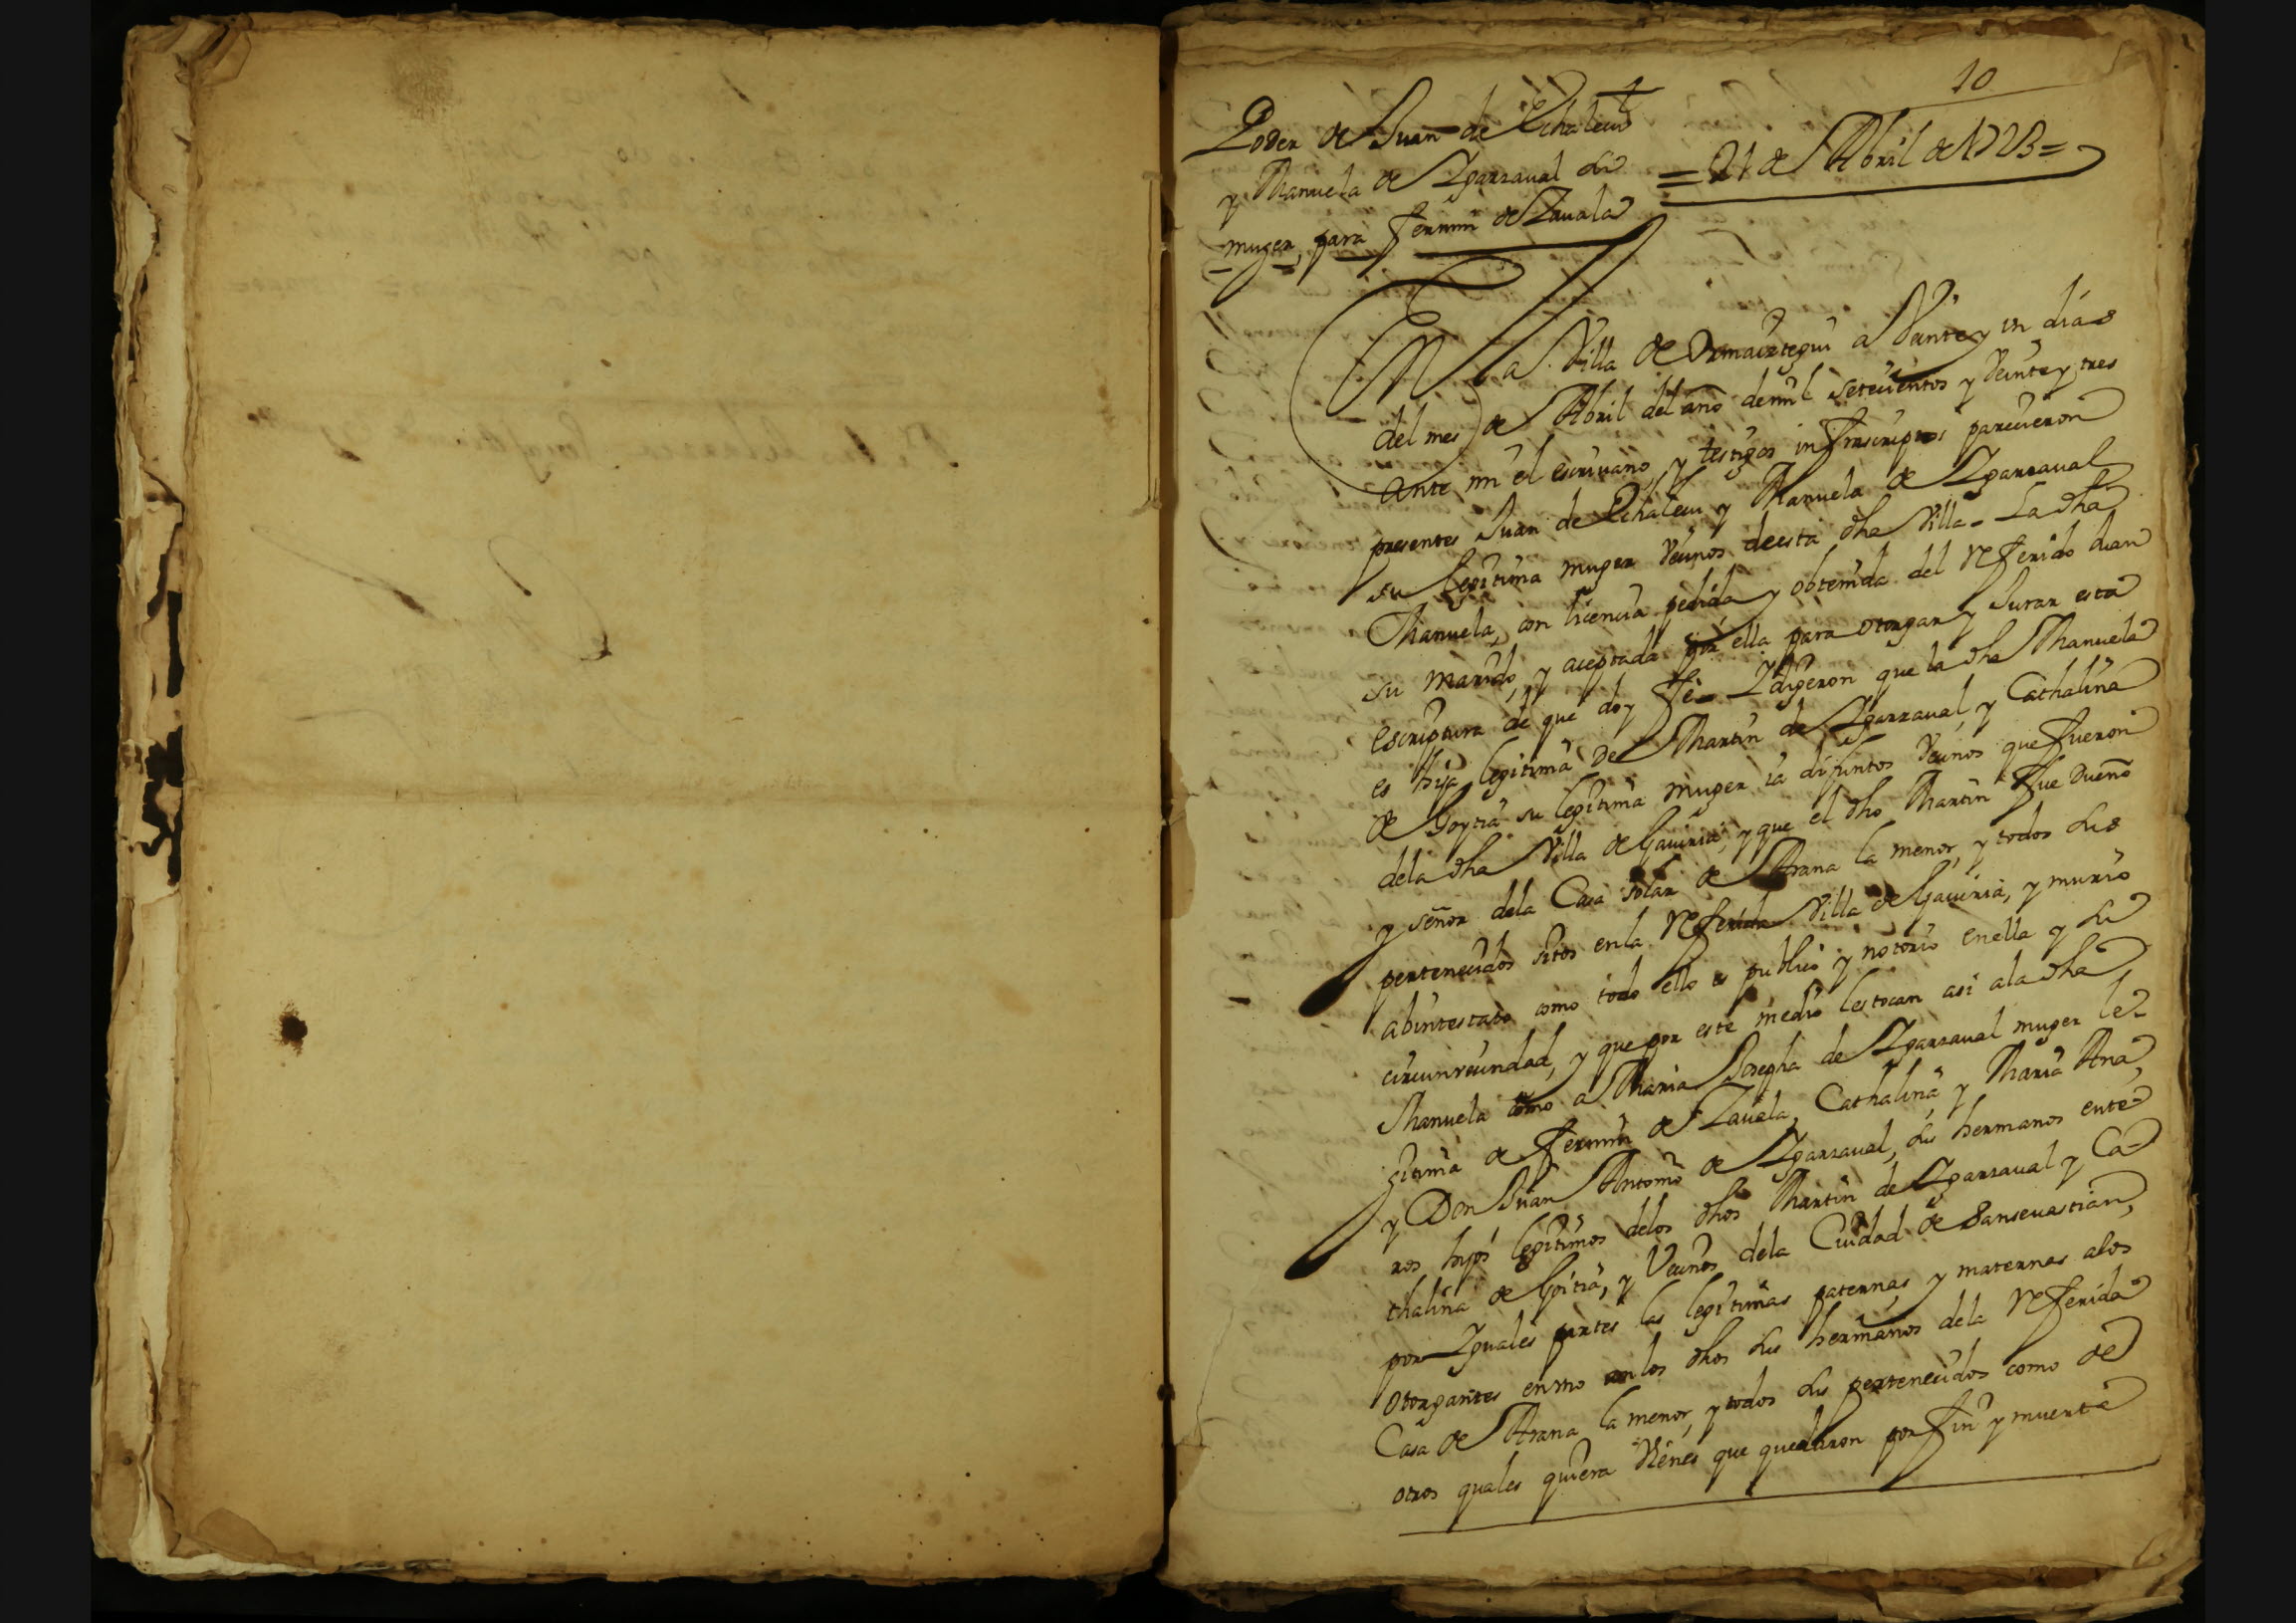 10
Poder de Juan de Echalecu
y Manuela de Ygarzaval su
muger, para Fermin de Zavala
= 21 de Abril de 1723 =
En la Villa de Ormaiztegui a Veinte y un dias
del mes de Abril del año de mil setecientos y Veinte y tres
ante mi el escrivano, y testigos infrascriptos parecieron
presentes Juan de Echalecu y Manuela de Ygarzaval
su legitima muger Vecinos de esta dha Villa - La dha
Manuela, con licencia pedida, y obtenida del Referido Juan
su marido, y aceptada por ella para otorgar y Jurar esta
escriptura de que doy fe - Y digeron que la dha Manuela
es hija legitima de Martin de Ygarzaval, y Cathalina
de Goytia su legitima muger ia difuntos Vecinos que fueron
dela dha Villa de Gaviria, y que el dho Martin fue Dueño
y señor dela Casa solar de Arana la menor, y todos sus
pertenecidos sitos en la Referida Villa de Gaviria, y murio
abintestato como todo ello es publico y notorio en ella y su
circunvecindad, y que por este medio les tocan asi ala dha
Manuela como a Maria Josepha de Ygarzaval muger le-
gitima de Fermin de Zavala, Cathalina y Maria Ana,
y Don Juan Antonio de Ygarzaval, sus hermanos ente-
ros hijos legitimos delos dhos Martin de Ygarzaval y Ca-
thalina de Goitia, y Vecinos dela Ciudad de Sansevastian,
por Yguales partes las legitimas paternas, y maternas alos
otorgantes como con los dhos sus hermanos dela Referida
Casa de Arana la menor, y todos sus pertenecidos como de
otros quales quiera Vienes que quedaron por fin y muerte